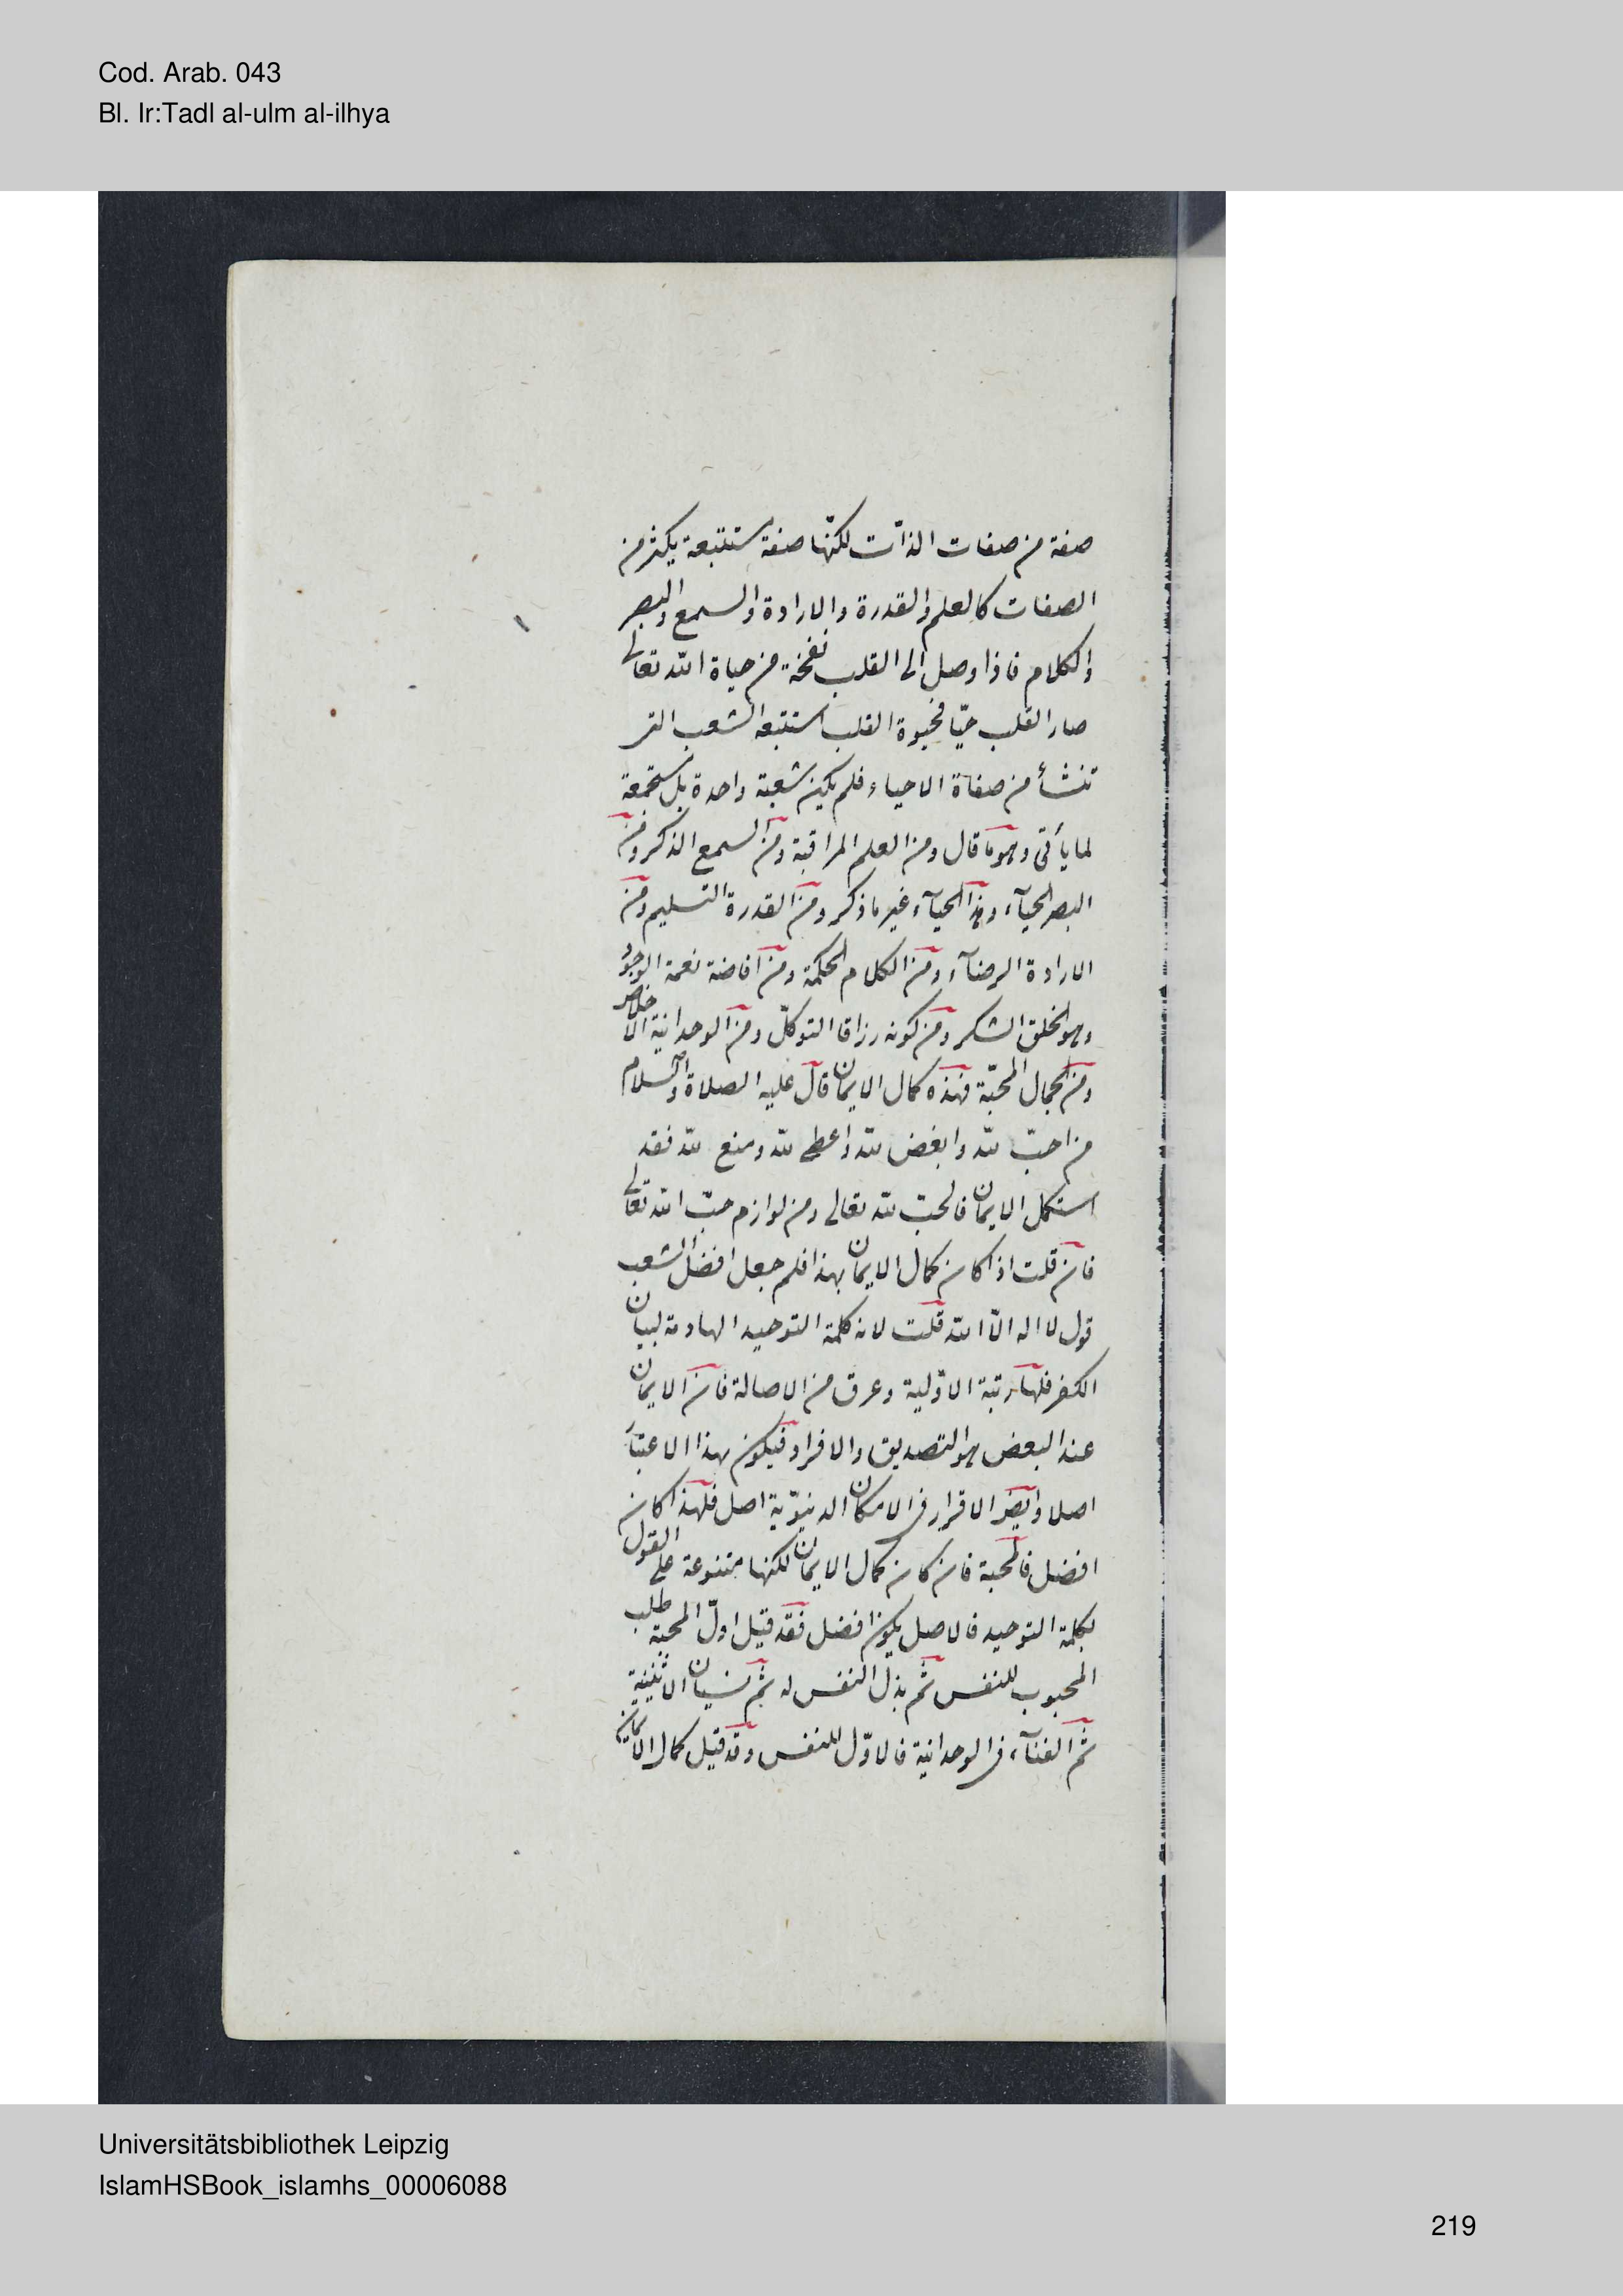 Cod. Arab. 043
Bl. Ir:Tadl al-ulm al-ilhya
صفة من صفات الذّات لكنّها صفة مستتبعة يكثر من
الصفات كالعلم والقدرة والارادة والسمع والبصر
والكلام فاذا وصل الى القلب نفخة من حياة الله تعالى
صار القلب حيّا فحيوة القلب استتبعه الشعب التى
تنشأ من صفاة الاحياء فلم يكن شعبة واحدة بل مستجمعة
لما يأتى وهو ما قال ومن العلم المراقبة ومن السمع الذكر ومن
البصر الحيآء وهذا الحيآء غير ما ذكر ومن القدرة التسليم ومن
الارادة الرضآء ومن الكلام الحكمة ومن افاضة نعمة الوجود
وهو الخلق الشكر ومن كونه رزاقا التوكّل ومن الوحدانية الاخلاص
ومن الجمال المحبّة فهذه كمال الايمان قال عليه الصلاة والسلام
من احبّ لله وابغض لله واعطى لله ومنع لله فقد
استكمل الايمان فالحبّ لله تعالى من لوازم حبّ الله تعالى
فان قلت اذا كان كمال الايمان بهذا فلم جعل افضل الشعب
قول لا اله الّا الله قلت لانه كلمة التوحيد الهادمة لبيان
الكفر فلها رتبة الاوّلية وعرق من الاصالة فان الايمان
عند البعض هو التصديق والاقرار فيكون بهذا الاعتبار
اصلا وايضا الاقرار فى الامكان الدنيوّية اصل فلهذا كان
افضل فالمحبة فان كان كمال الايمان لكنها متنوعة على القول
بكلمة التوحيد فالاصل يكون افضل فقد قيل اولّ المحبة طلب
المحبوب للنفس ثم بذل النفس له ثم نسيان الاثنينية
ثم الفنآء فى الوحدانية فالاوّل للنفس وقد قيل كمال الايمان
Universitätsbibliothek Leipzig
IslamHSBook_islamhs_00006088
219